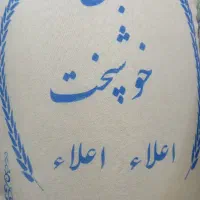 خوشبخت
اعلاء اعلاء